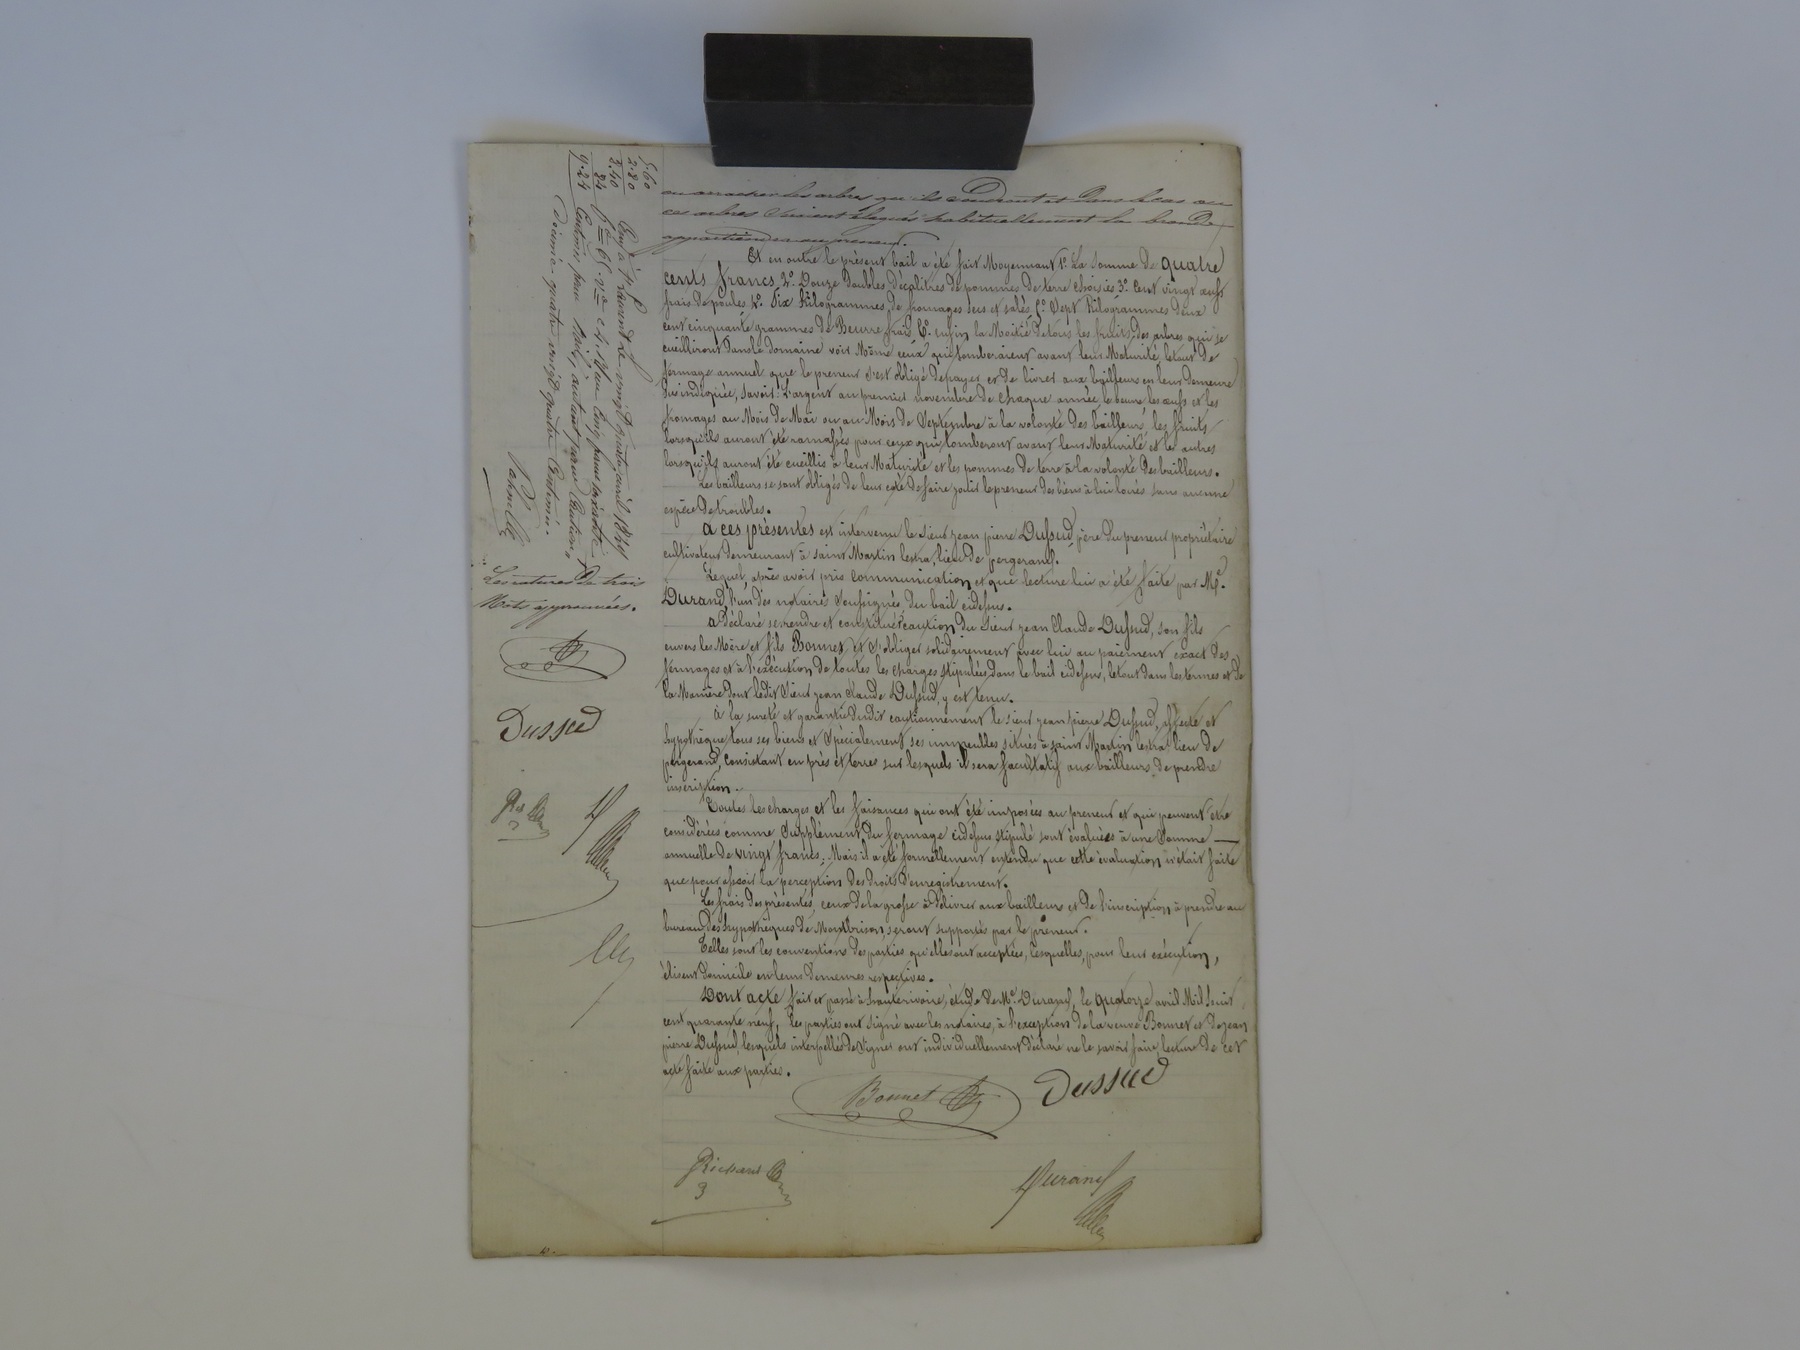 ou arracher les arbres qu'ils voudront et dans le cas où
ces arbres seraient élagués habituellement la branche
appartiendra au preneur.
Et en outre le présent bail a été fait Moyennant 1º. La somme de quatre
cents francs, 2º. Douze doubles décalitres de pommes de terre choisies, 3º. Cent vingt œufs
frais de poules, 4º. Six Kilogrammes de fromages secs et salés, 5º. Sept Kilogrammes deux
cent cinquante grammes de Beurre frais, 6º. enfin la Moitié de tous les fruits des arbres qui se
cueilliront dans le domaine voir Même ceux qui tomberaient avant leur Maturité, le tout de
fermage annuel que le preneur s'est obligé de payer et de livrer aux bailleurs en leur demeure
sus indiquée, savoir: L'argent au premier novembre de chaque année, le beurre, les œufs et les
fromages au Mois de Mai ou au Mois de Septembre à la volonté des bailleurs, les fruits
lorsqu'ils auront été ramassés pour ceux qui tomberont avant leur Maturité et les autres
lorsqu'ils auront été cueillis à leur Maturité et les pommes de terre à la volonté des bailleurs.
Les bailleurs se sont obligés de leur coté de faire jouir le preneur des biens à lui loués sans aucune
espèce de troubles.
a ces présentes est intervenu le Sieur jean pierre Dussud, père du preneur propriétaire
cultivateur demeurant à saint Martin lestra, lieu de pergerand.
Lequel, après avoir pris communication et que lecture lui a été faite par Me.
Durand, l'un des notaires soussignés, du bail cidessus.
a Déclaré se rendre et constituer caution du Sieur jean Claude Dussud, son fils
envers les Mère et fils Bonnet et s'obliger solidairement avec lui au paiement exact des
fermages et à l'exécution de toutes les charges stipulées dans le bail cidessus, le tout dans les termes et de
la Manière dont ledit Sieur jean Claude Dussud, y est tenu.
à la sureté et garantie dudit cautionnement le sieur jean pierre Dussud, affecte et
hypothèque tous ses biens et spécialement ses immeubles situés à saint Martin lestra lieu de
pergerand, consistant en près et terres sur lesquels il sera facultatif aux bailleurs de prendre
inscription.
Toutes les charges et les faisances qui ont été imposées au preneur et qui peuvent être
considérées comme supplément du fermage cidessus stipulé sont évaluées à une somme
annuelle de vingt francs; Mais il a été formellement entendu que cette évaluation n'était faite
que pour asseoir la perception des droits d'enregistrement.
Les frais des présentes, ceux de la grosse à délivrer aux bailleurs et de l'inscription à prendre au
bureau des hypothèques de Montbrison, seront supportés par le preneur.
Telles sont les conventions des parties qu'elles ont acceptées, lesquelles, pour leur exécution,
élisent domicile en leurs demeures respectives.
Dont acte fait et passé à hauterivoire, étude de Me. Durand, le quatorze avril Mil huit
cent quarante neuf, les parties ont signé avec les notaires, à l'exception de la veuve Bonnet et de jean
pierre Dussud, lesquels interpellés de signer ont individuellement déclaré ne le savoir faire, lecture de cet
acte faite aux parties.
Bonnet
Dussud
Richard
Durand
5.60
2.80
8.40
84
9.24
Les ratures de trois
Mots approuvées.
Dussud